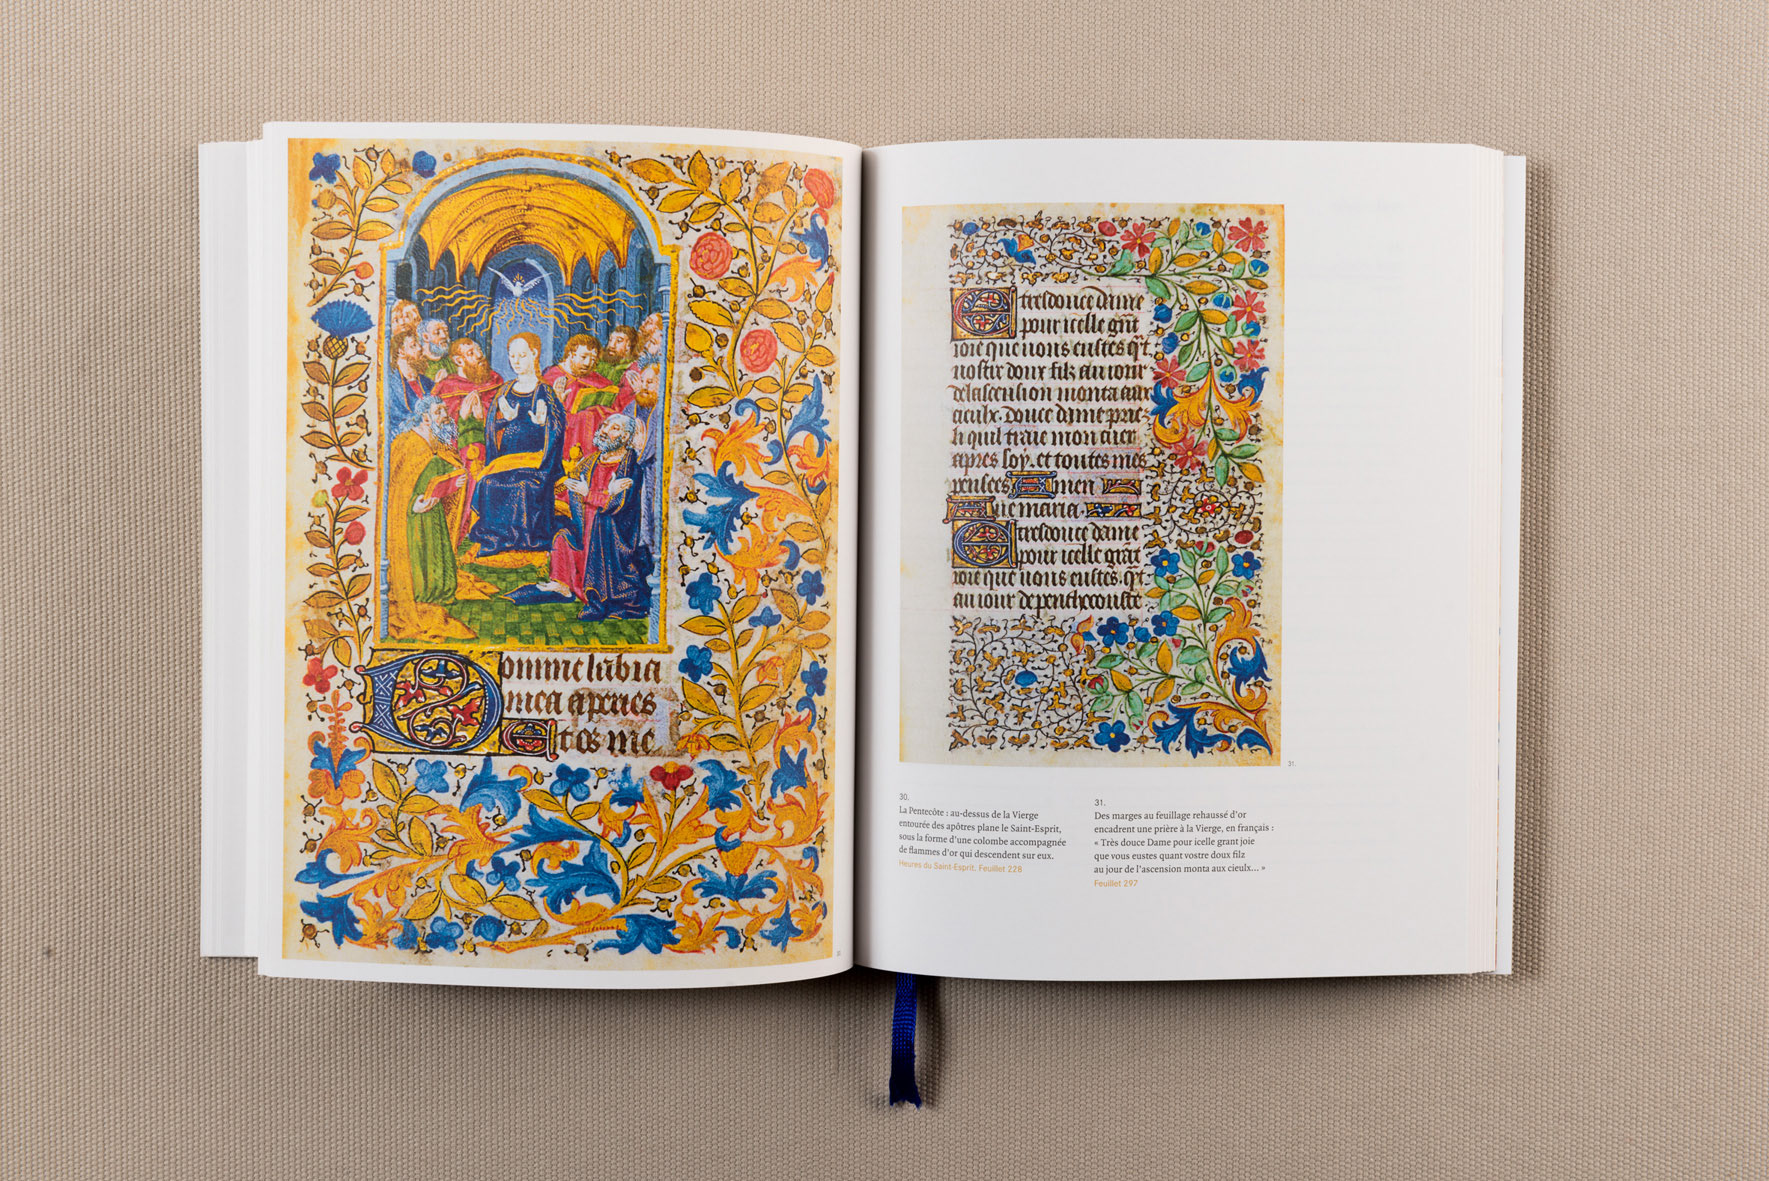 Domine labia
mea aperies
Et os me
E tresdouce dame
pour icelle grāt
ioie que uous eustes qn̄t
uostre doux filz au iour
delascension monta aux
cieulx. douce dame prie
li quil traie mon cuer
apres soy. et toutes mes
pensees. Amen
Aue maria.
E tresdouce dame
pour icelle grāt
ioie que uous eustes. qn̄t
au iour de penthecouste
31.
30.
La Pentecôte : au-dessus de la Vierge
entourée des apôtres plane le Saint-Esprit,
sous la forme d'une colombe accompagnée
de flammes d'or qui descendent sur eux.
Heures du Saint-Esprit. Feuillet 228
31.
Des marges au feuillage rehaussé d'or
encadrent une prière à la Vierge, en français :
« Très douce Dame pour icelle grant joie
que vous eustes quant vostre doux filz
au jour de l'ascension monta aux cieulx... »
Feuillet 297